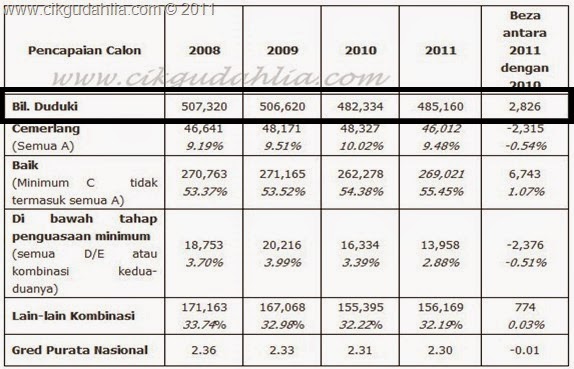 www.cikgudahlia.com © 2011
Pencapaian Calon 2008 2009 2010 2011 Beza
antara
2011
dengan
2010
www.cikgudahlia.com
Bil. Duduki 507,320 506,620 482,334 485,160 2,826
Cemerlang 46,641 48,171 48,327 46,012 -2,315
(Semua A) 9.19% 9.51% 10.02% 9.48% -0.54%
Baik
(Minimum C tidak 270,763 271,165 262,278 269,021 6,743
termasuk semua A) 53.37% 53.52% 54.38% 55.45% 1.07%
Di bawah tahap
penguasaan minimum
(semua D/E atau 18,753 20,216 16,334 13,958 -2,376
kombinasi kedua- 3.70% 3.99% 3.39% 2.88% -0.51%
duanya)
Lain-lain Kombinasi 171,163 167,068 155,395 156,169 774
33.74% 32.98% 32.22% 32.19% 0.03%
Gred Purata Nasional 2.36 2.33 2.31 2.30 -0.01